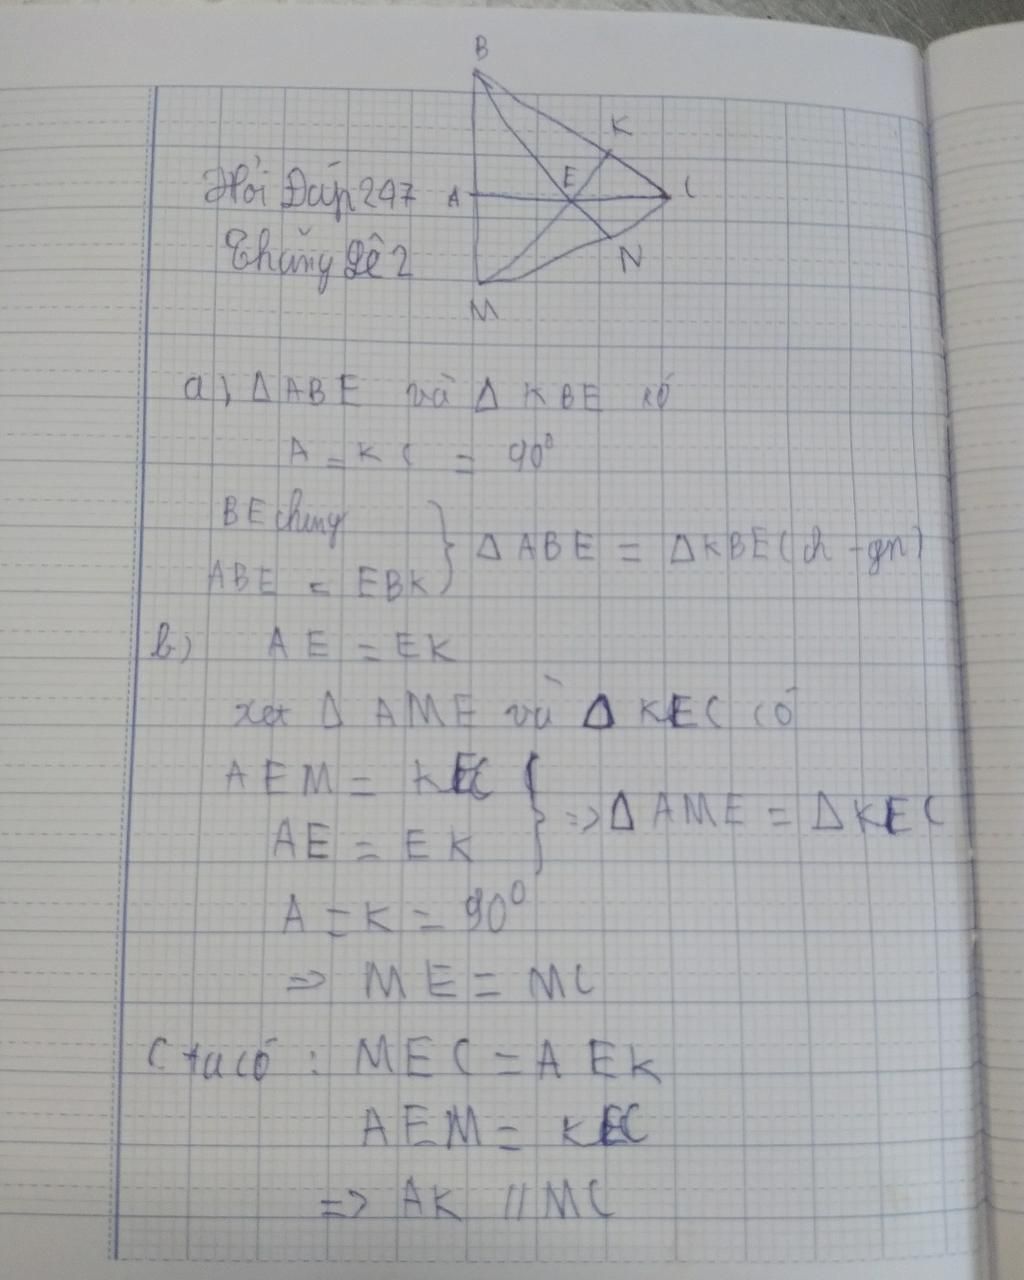 B
K
Hỏi Đáp 247 A E C
Thắng Lê 2 N
M
a) Δ ABE và Δ KBE có
A = K C = 90°
BE chung
ABE = EBK } Δ ABE = Δ KBE (ch - gn)
b) AE = EK
xét Δ AME và Δ KEC có
AEM = KEC
AE = EK } => Δ AME = Δ KEC
A = K = 90°
=> ME = MC
C ta có : MEC = AEK
AEM = KEC
=> AK // MC